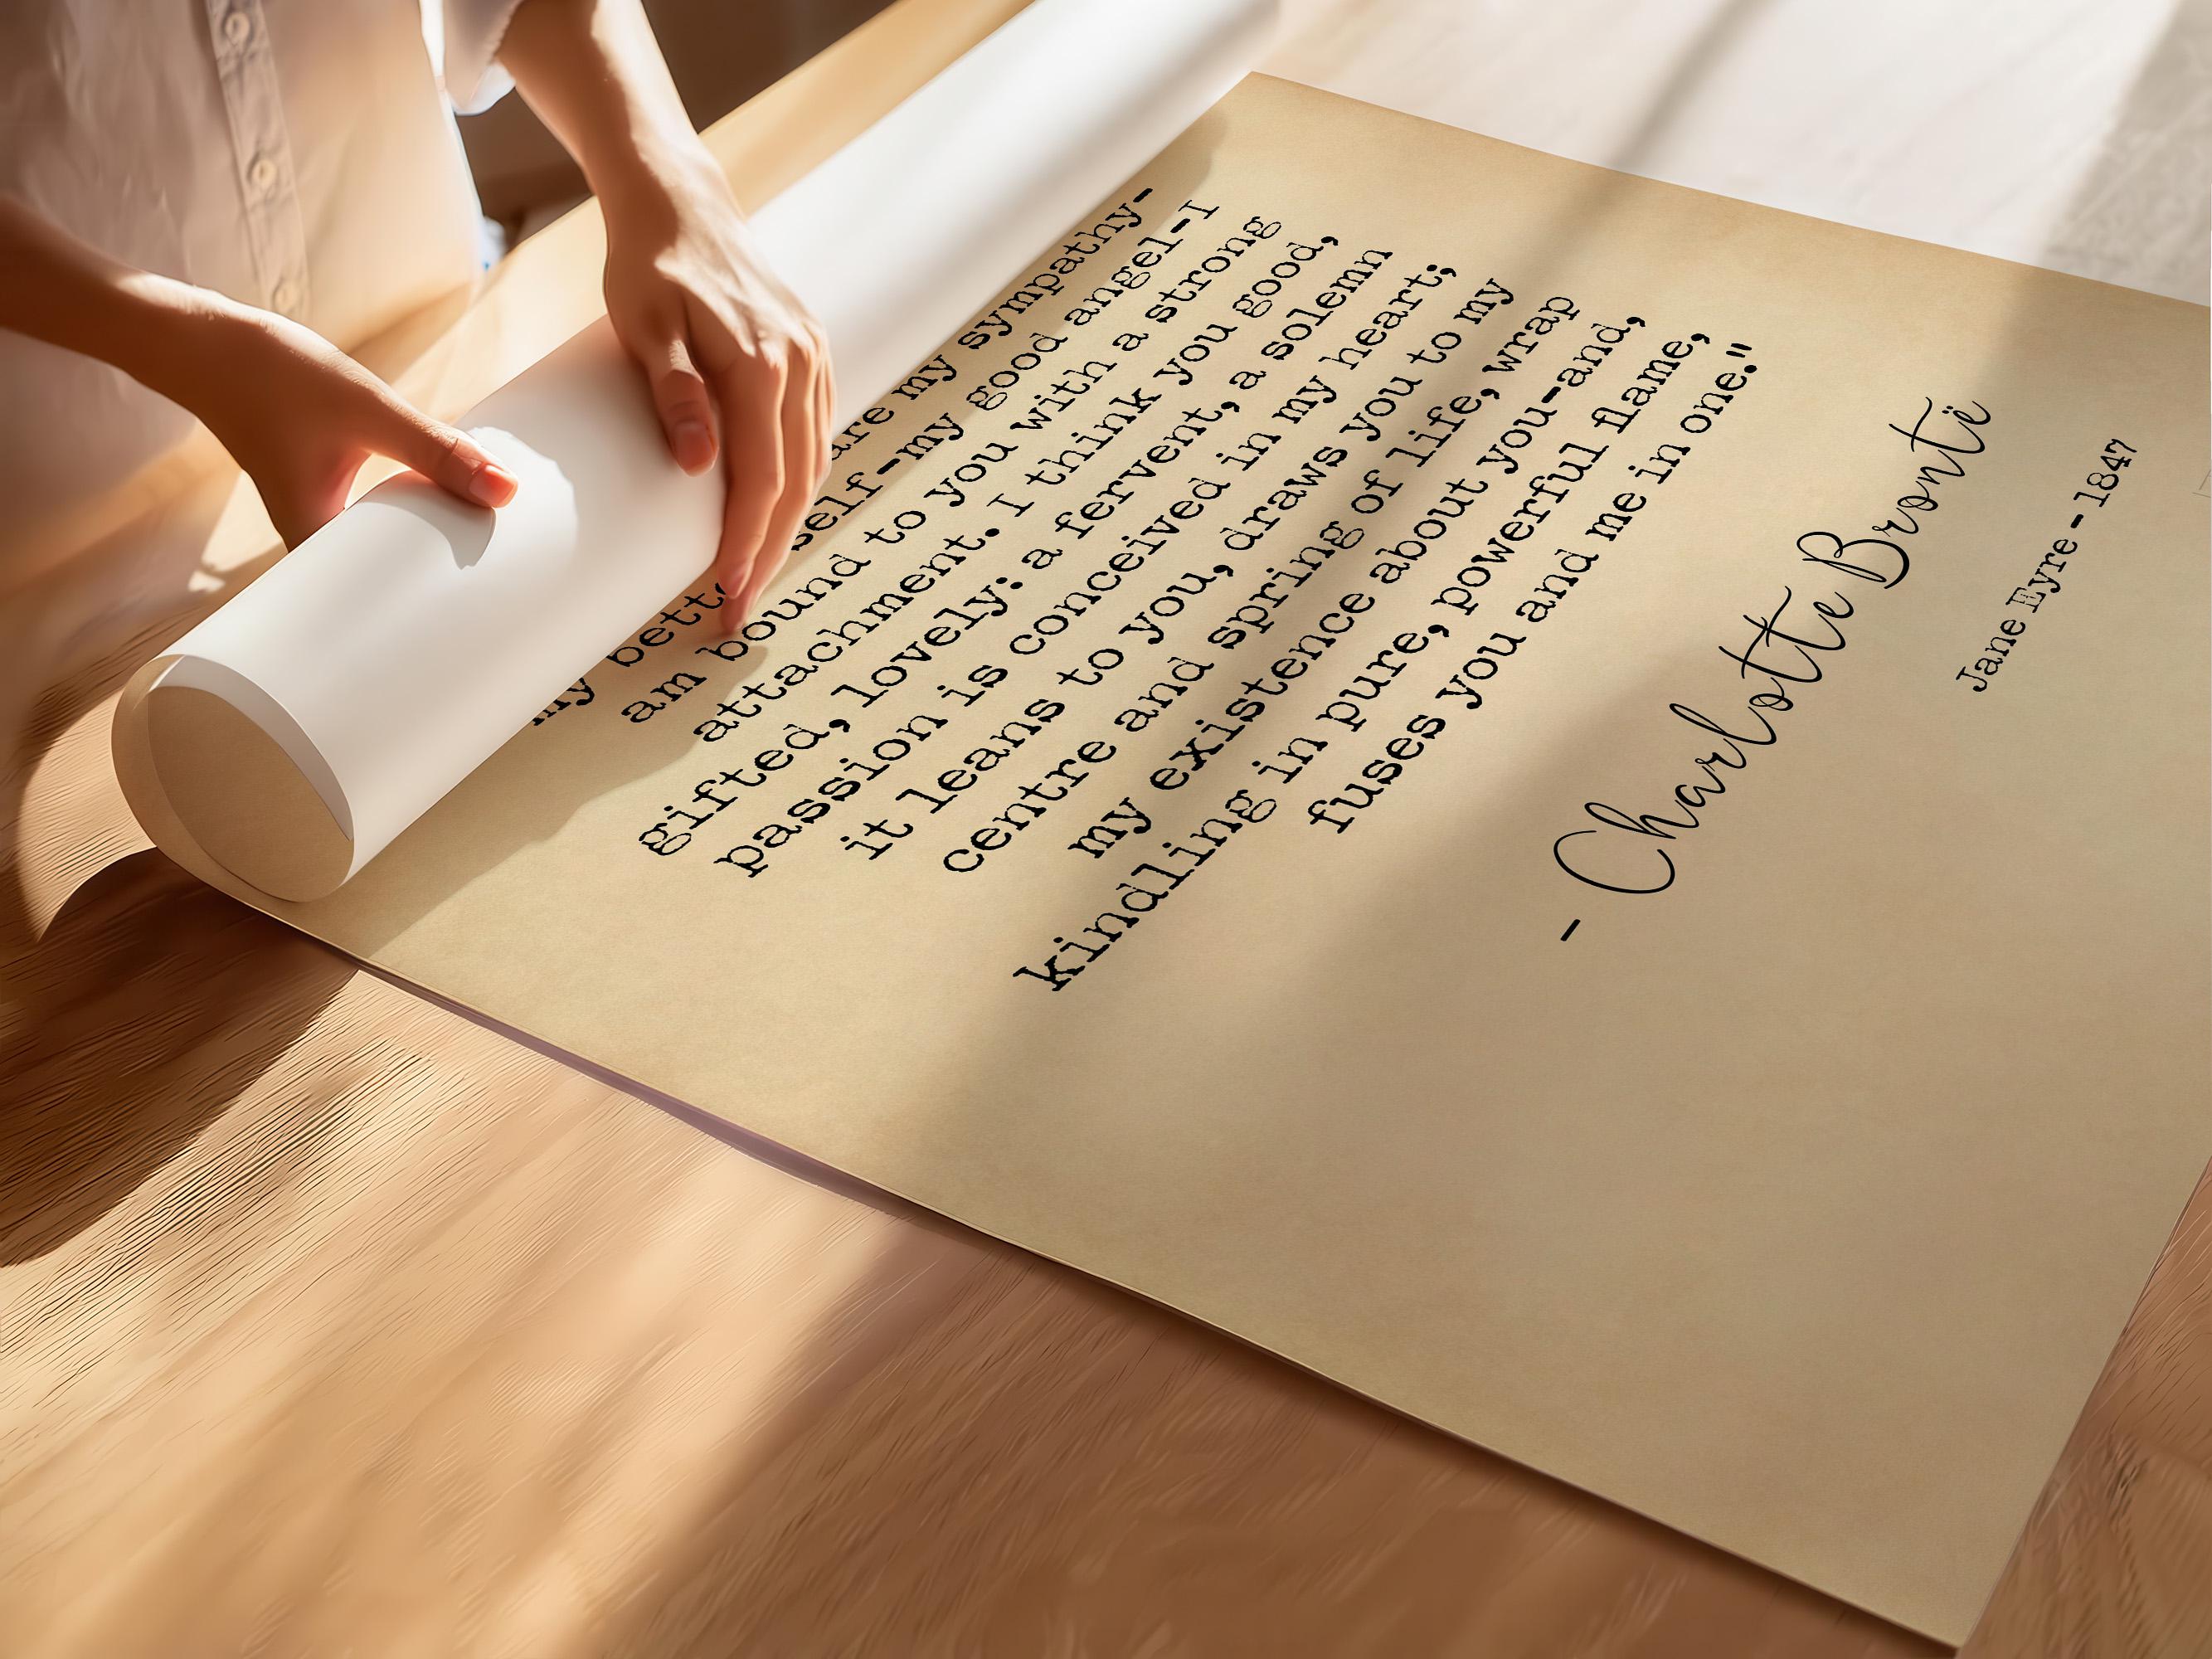 are my sympathy-
my self-my good angel-I
am bound to you with a strong
attachment. I think you good,
gifted, lovely: a fervent, a solemn
passion is conceived in my heart;
it leans to you, draws you to my
centre and spring of life, wrap
my existence about you-and,
kindling in pure, powerful flame,
fuses you and me in one."
- Charlotte Brontë
Jane Eyre - 1847